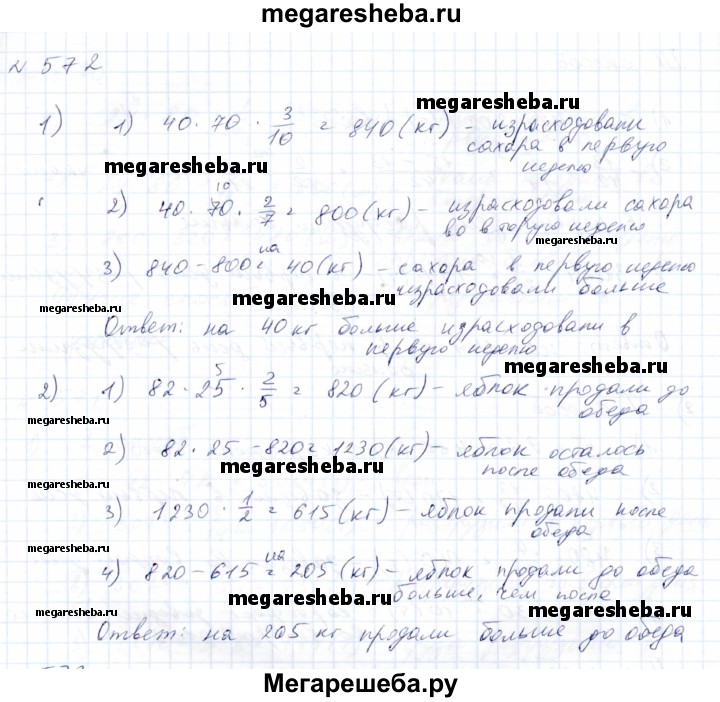 megaresheba.ru
№ 572
1) 1) 40 · 70 · 3/10 = 840 (кг) - израсходовали
megaresheba.ru
сахара в первую
megaresheba.ru
неделю
10
2) 40 · 70 · 2/7 = 800 (кг) - израсходовали сахара
во вторую неделю
megaresheba.ru
3) 840 - 800 = на 40 (кг) - сахара в первую неделю
megaresheba.ru
израсходовали больше
megaresheba.ru
Ответ: на 40 кг больше израсходовали в
первую неделю
megaresheba.ru
5
2) 1) 82 · 25 · 2/5 = 820 (кг) - яблок продали до
megaresheba.ru
обеда
megaresheba.ru
2) 82 · 25 - 820 = 1230 (кг) - яблок осталось
megaresheba.ru
после обеда
megaresheba.ru
3) 1230 · 1/2 = 615 (кг) - яблок продали после
megaresheba.ru
обеда
megaresheba.ru
4) 820 - 615 = на 205 (кг) - яблок продали до обеда
megaresheba.ru
больше, чем после
megaresheba.ru
megaresheba.ru
Ответ: на 205 кг продали больше до обеда
Мегарешеба.ру